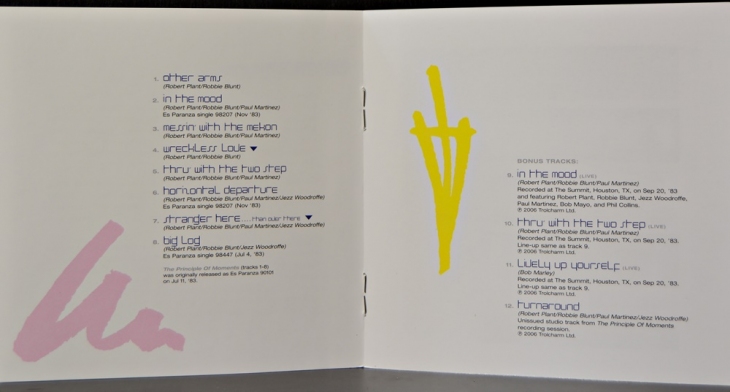 1. other arms
(Robert Plant/Robbie Blunt)
2. in the mood
(Robert Plant/Robbie Blunt/Paul Martinez)
Es Paranza single 98207 (Nov '83)
3. messin' with the mekon
(Robert Plant/Robbie Blunt/Paul Martinez)
4. wreckless love ▼
(Robert Plant/Robbie Blunt)
5. thru' with the two step
(Robert Plant/Robbie Blunt/Paul Martinez)
6. horizontal departure
(Robert Plant/Robbie Blunt/Paul Martinez/Jezz Woodroffe)
Es Paranza single 98207 (Nov '83)
7. stranger here...than over there ▼
(Robert Plant/Robbie Blunt/Paul Martinez/Jezz Woodroffe)
8. big Log
(Robert Plant/Robbie Blunt/Jezz Woodroffe)
Es Paranza single 98447 (Jul 4, '83)
The Principle Of Moments (tracks 1-8)
was originally released as Es Paranza 90101
on Jul 11, '83.
BONUS TRACKS:
9. in the mood (LIVE)
(Robert Plant/Robbie Blunt/Paul Martinez)
Recorded at The Summit, Houston, TX, on Sep 20, '83
and featuring Robert Plant, Robbie Blunt, Jezz Woodroffe,
Paul Martinez, Bob Mayo, and Phil Collins.
℗ 2006 Trolcharm Ltd.
10. thru' with the two step (LIVE)
(Robert Plant/Robbie Blunt/Paul Martinez)
Recorded at The Summit, Houston, TX, on Sep 20, '83.
Line-up same as track 9.
℗ 2006 Trolcharm Ltd.
11. Lively up yourself (LIVE)
(Bob Marley)
Recorded at The Summit, Houston, TX, on Sep 20, '83.
Line-up same as track 9.
℗ 2006 Trolcharm Ltd.
12. turnaround
(Robert Plant/Robbie Blunt/Paul Martinez/Jezz Woodroffe)
Unissued studio track from The Principle Of Moments
recording session.
℗ 2006 Trolcharm Ltd.